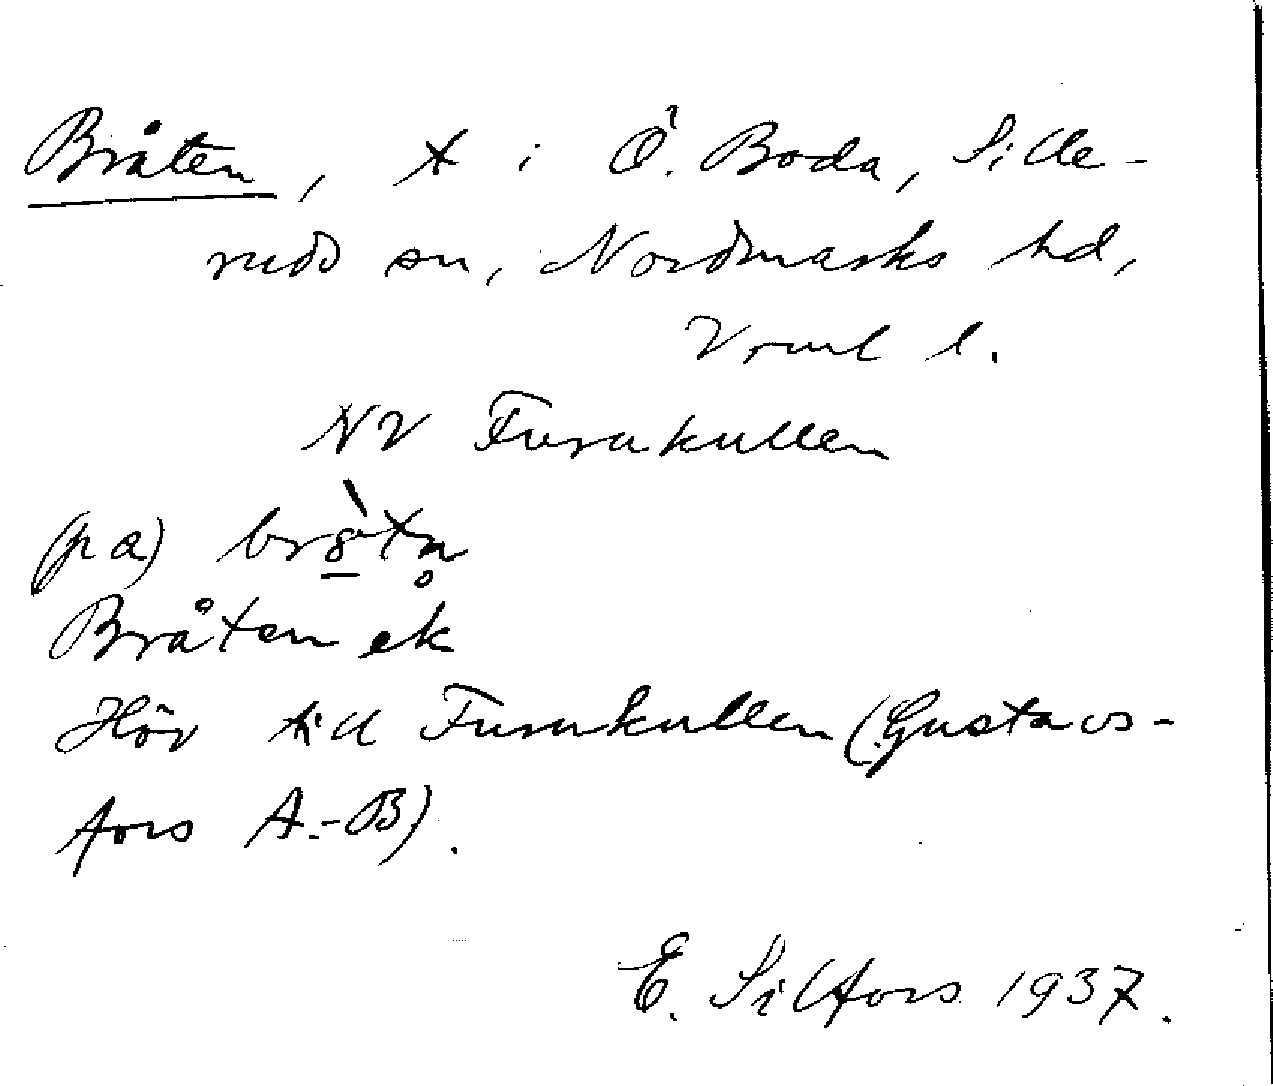 Bråten, t i Ö. Boda, Sille-
ruds sn, Nordmarks hd,
Vrml l.
NV Furukullen
(pa)
Bråten ek
Hör till Furukullen (Gustavs-
fors A.-B).
E. Silfors 1937.